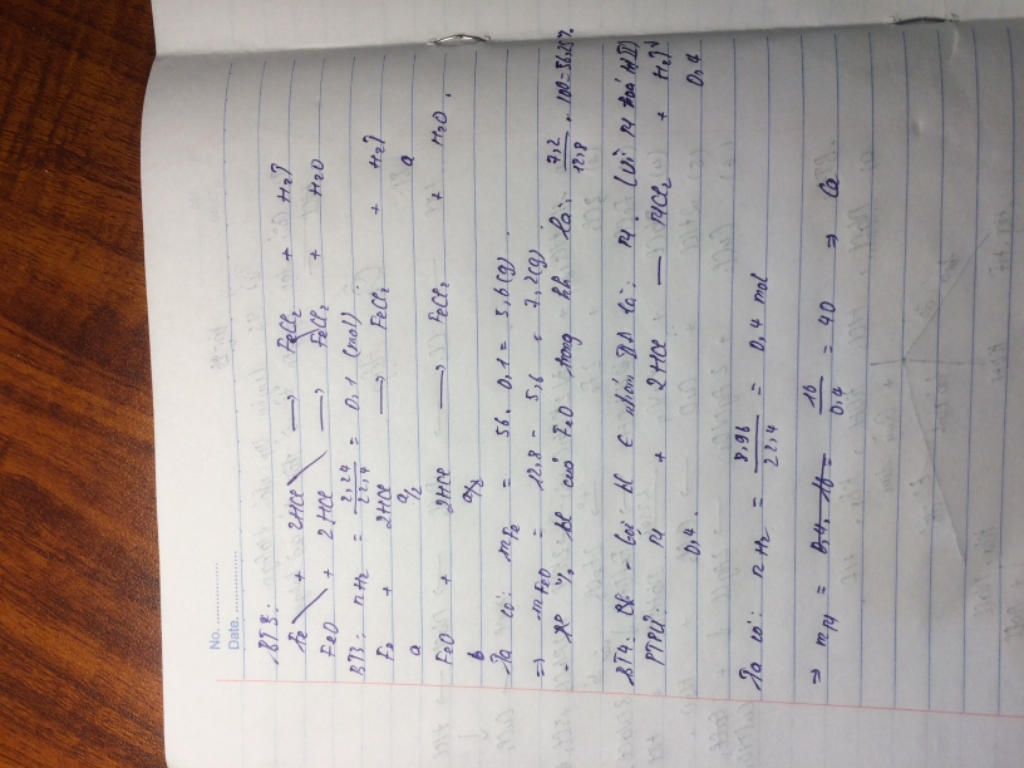 No. ................
Date. ................
BT3:
Fe + 2HCl → FeCl₂ + H₂↑
FeO + 2HCl → FeCl₂ + H₂O
BT3: nH₂ = 2,24/22,4 = 0,1 (mol)
Fe + 2HCl → FeCl₂ + H₂↑
a a
FeO + 2HCl → FeCl₂ + H₂O.
b
Ta có: mFe = 56. 0,1 = 5,6(g).
⇒ mFeO = 12,8 - 5,6 = 7,2(g)
- % kl của FeO trong hh là: 7,2/12,8 . 100 = 56,25%.
BT4: kl ∈ nhóm là: M. (Vì M hoá trị II)
PTPƯ: M + 2HCl — MCl₂ + H₂↑
0,4. 0,4
Ta có: nH₂ = 8,96/22,4 = 0,4 mol
⇒ mM = 0,4. 16 = 16/0,4 = 40 ⇒ Ca